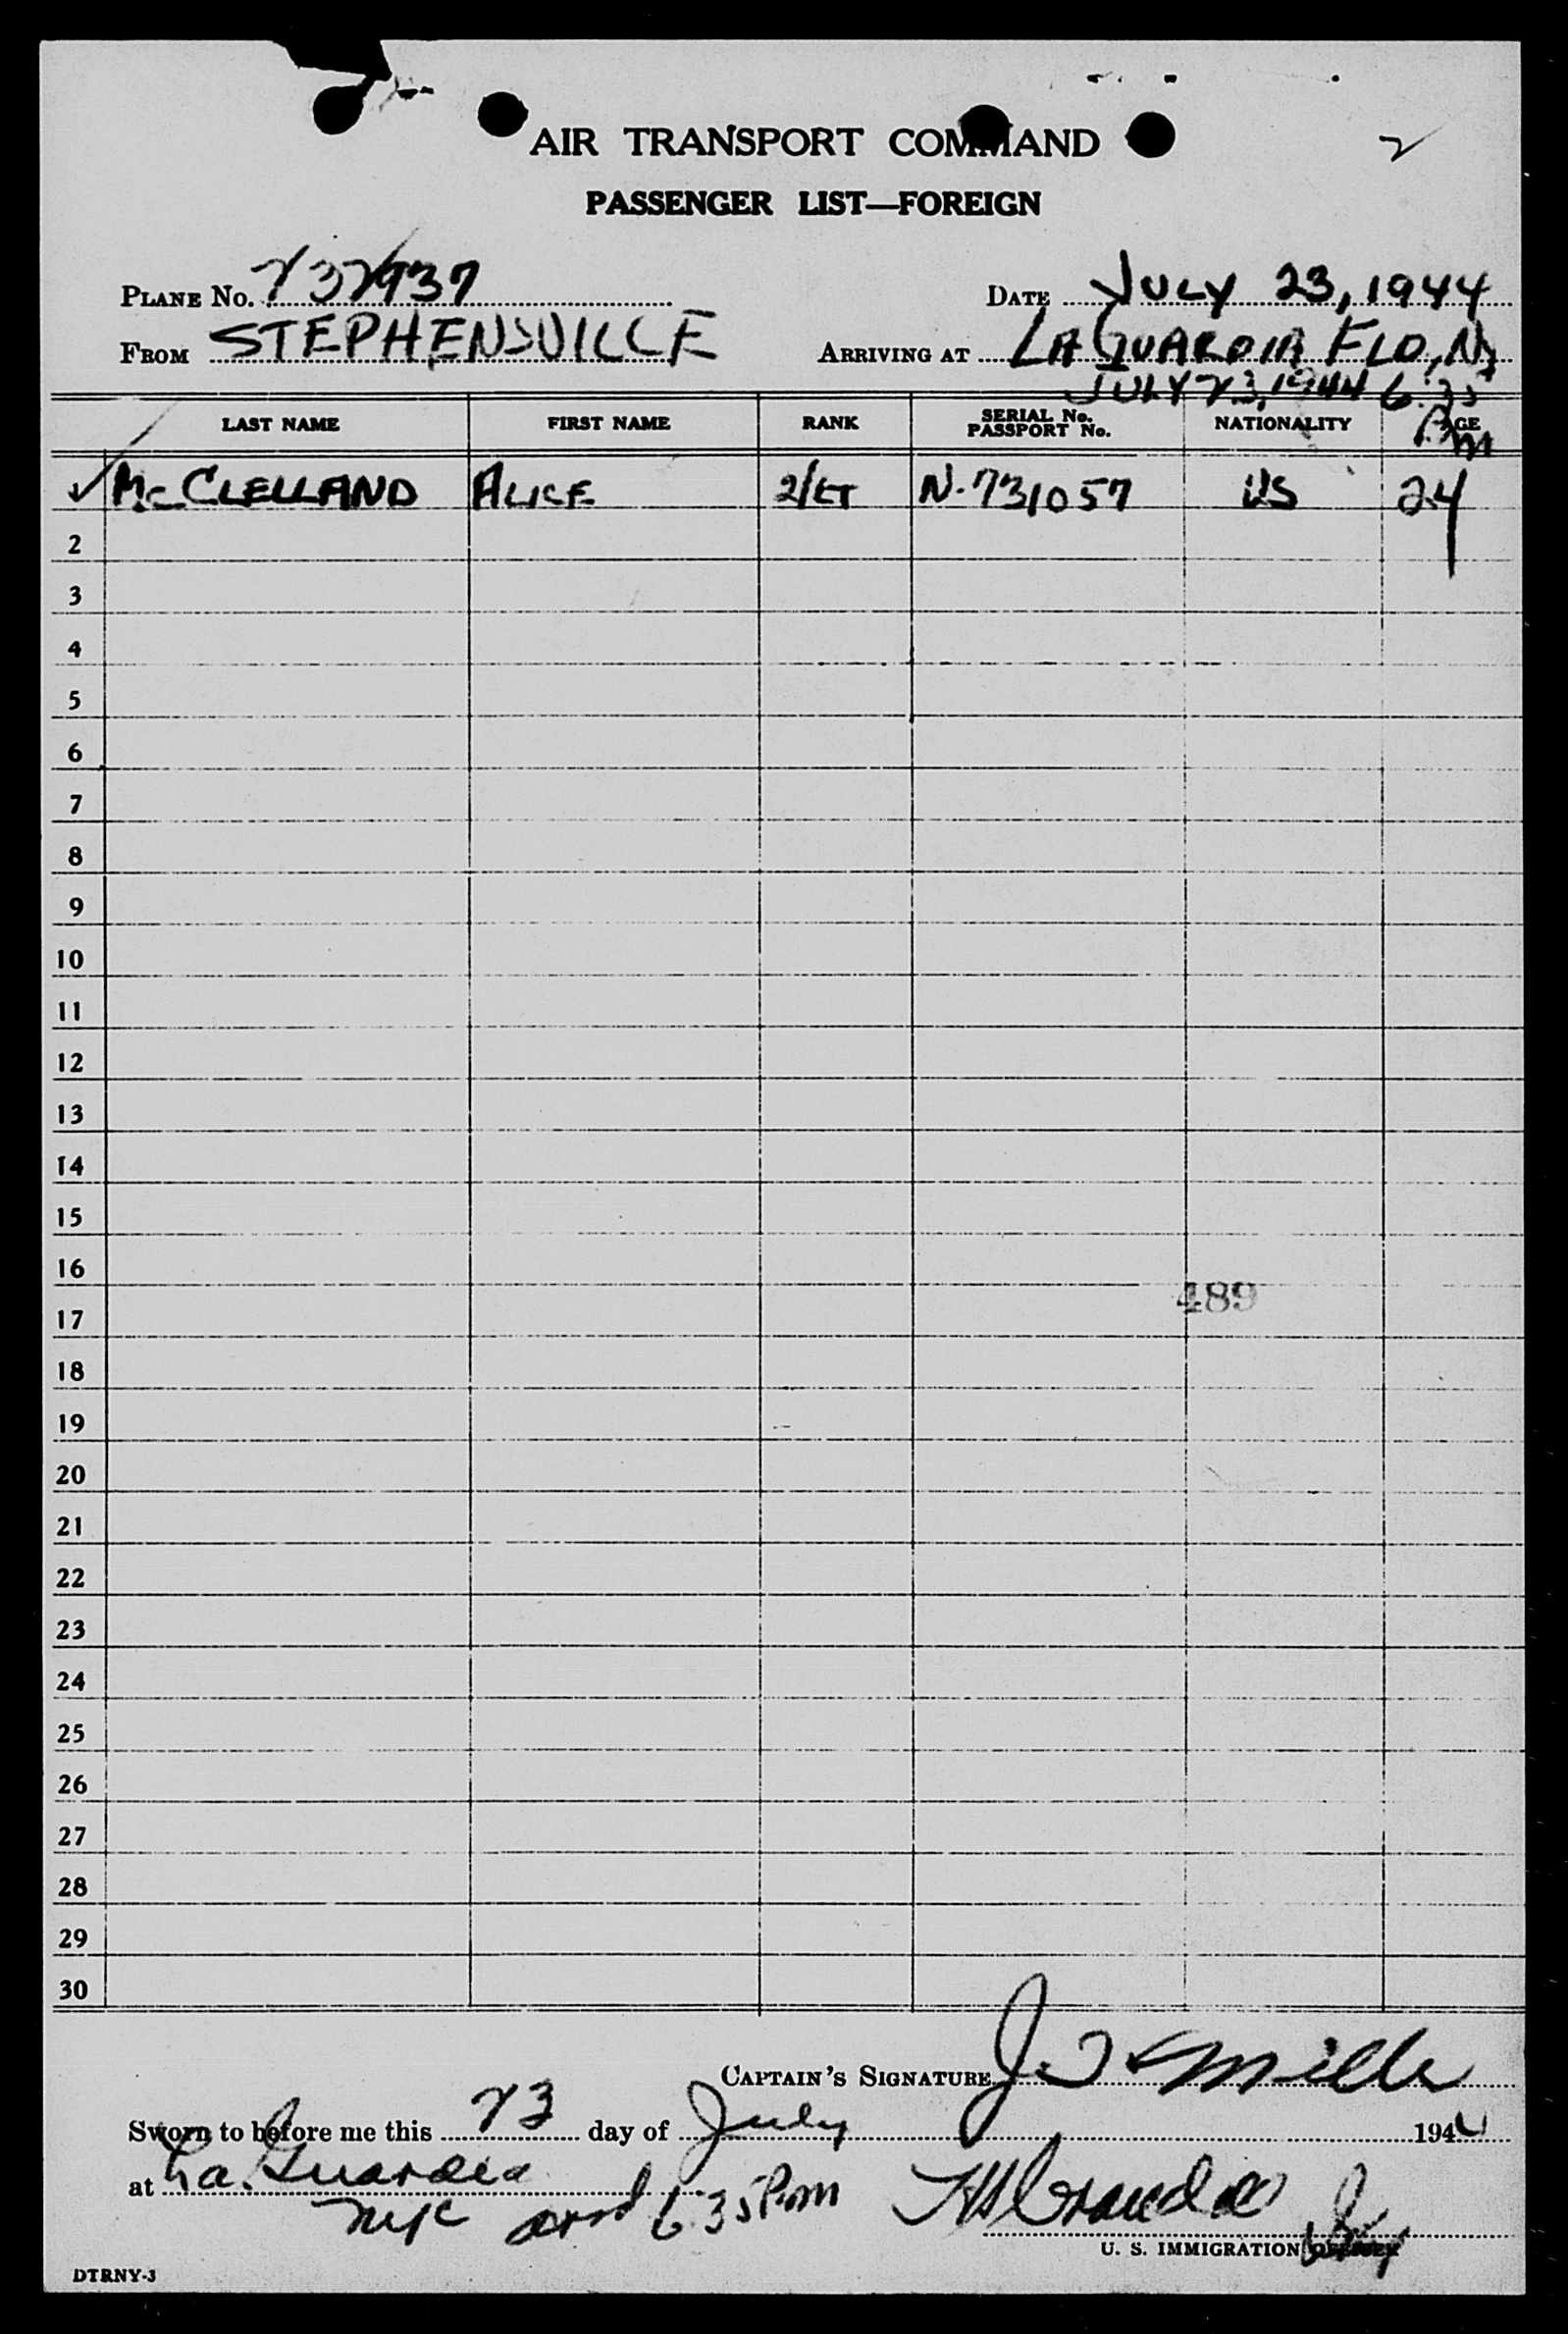 AIR TRANSPORT COMMAND
2
PASSENGER LIST—FOREIGN
PLANE No. 232937 DATE JULY 23, 1944
FROM STEPHENSVILLE ARRIVING AT LA GUARDIA FLD, NY
JULY 23, 1944 6:35
PM
LAST NAME FIRST NAME RANK SERIAL No. PASSPORT No. NATIONALITY AGE
McCLELLAND ALICE 2/LT N-731057 US 24
2
3
4
5
6
7
8
9
10
11
12
13
14
15
16
489
17
18
19
20
21
22
23
24
25
26
27
28
29
30
CAPTAIN'S SIGNATURE J. Mille
Sworn to before me this 23 day of July 1944
at La Guardia
NYC arrd 6:35 P.m
U. S. IMMIGRATION
DTRNY-3